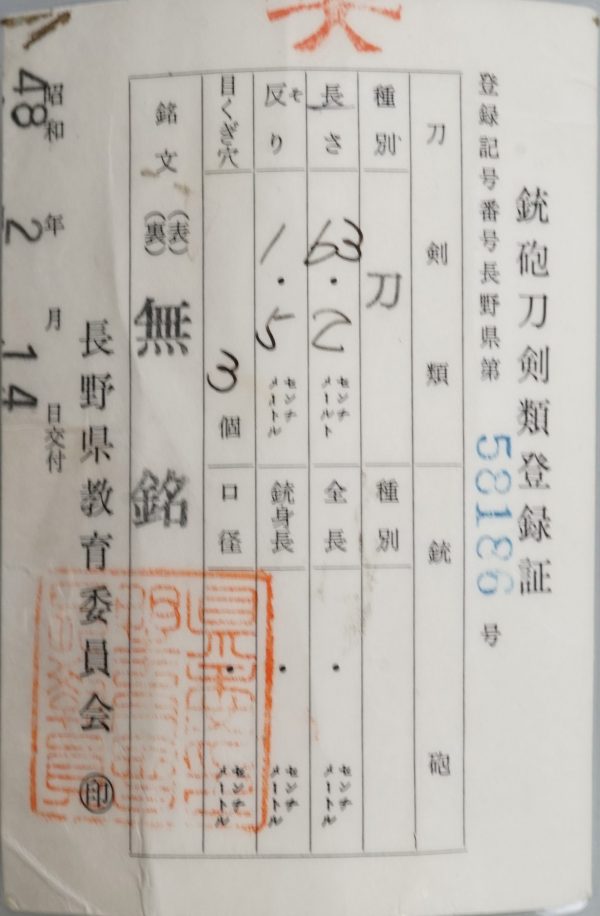 銃砲刀剣類登録証
登録記号番号長野県第 58186 号
刀剣類 銃砲
種別 刀 種別
長さ 63.2 センチメートル 全長 . センチメートル
反り ソ 1.5 センチメートル 銃身長 . センチメートル
目くぎ穴 3 個 口径 . センチメートル
銘文 (表)(裏) 無銘
長野県教育委員会 ㊞
昭和 48 年 2 月 14 日交付